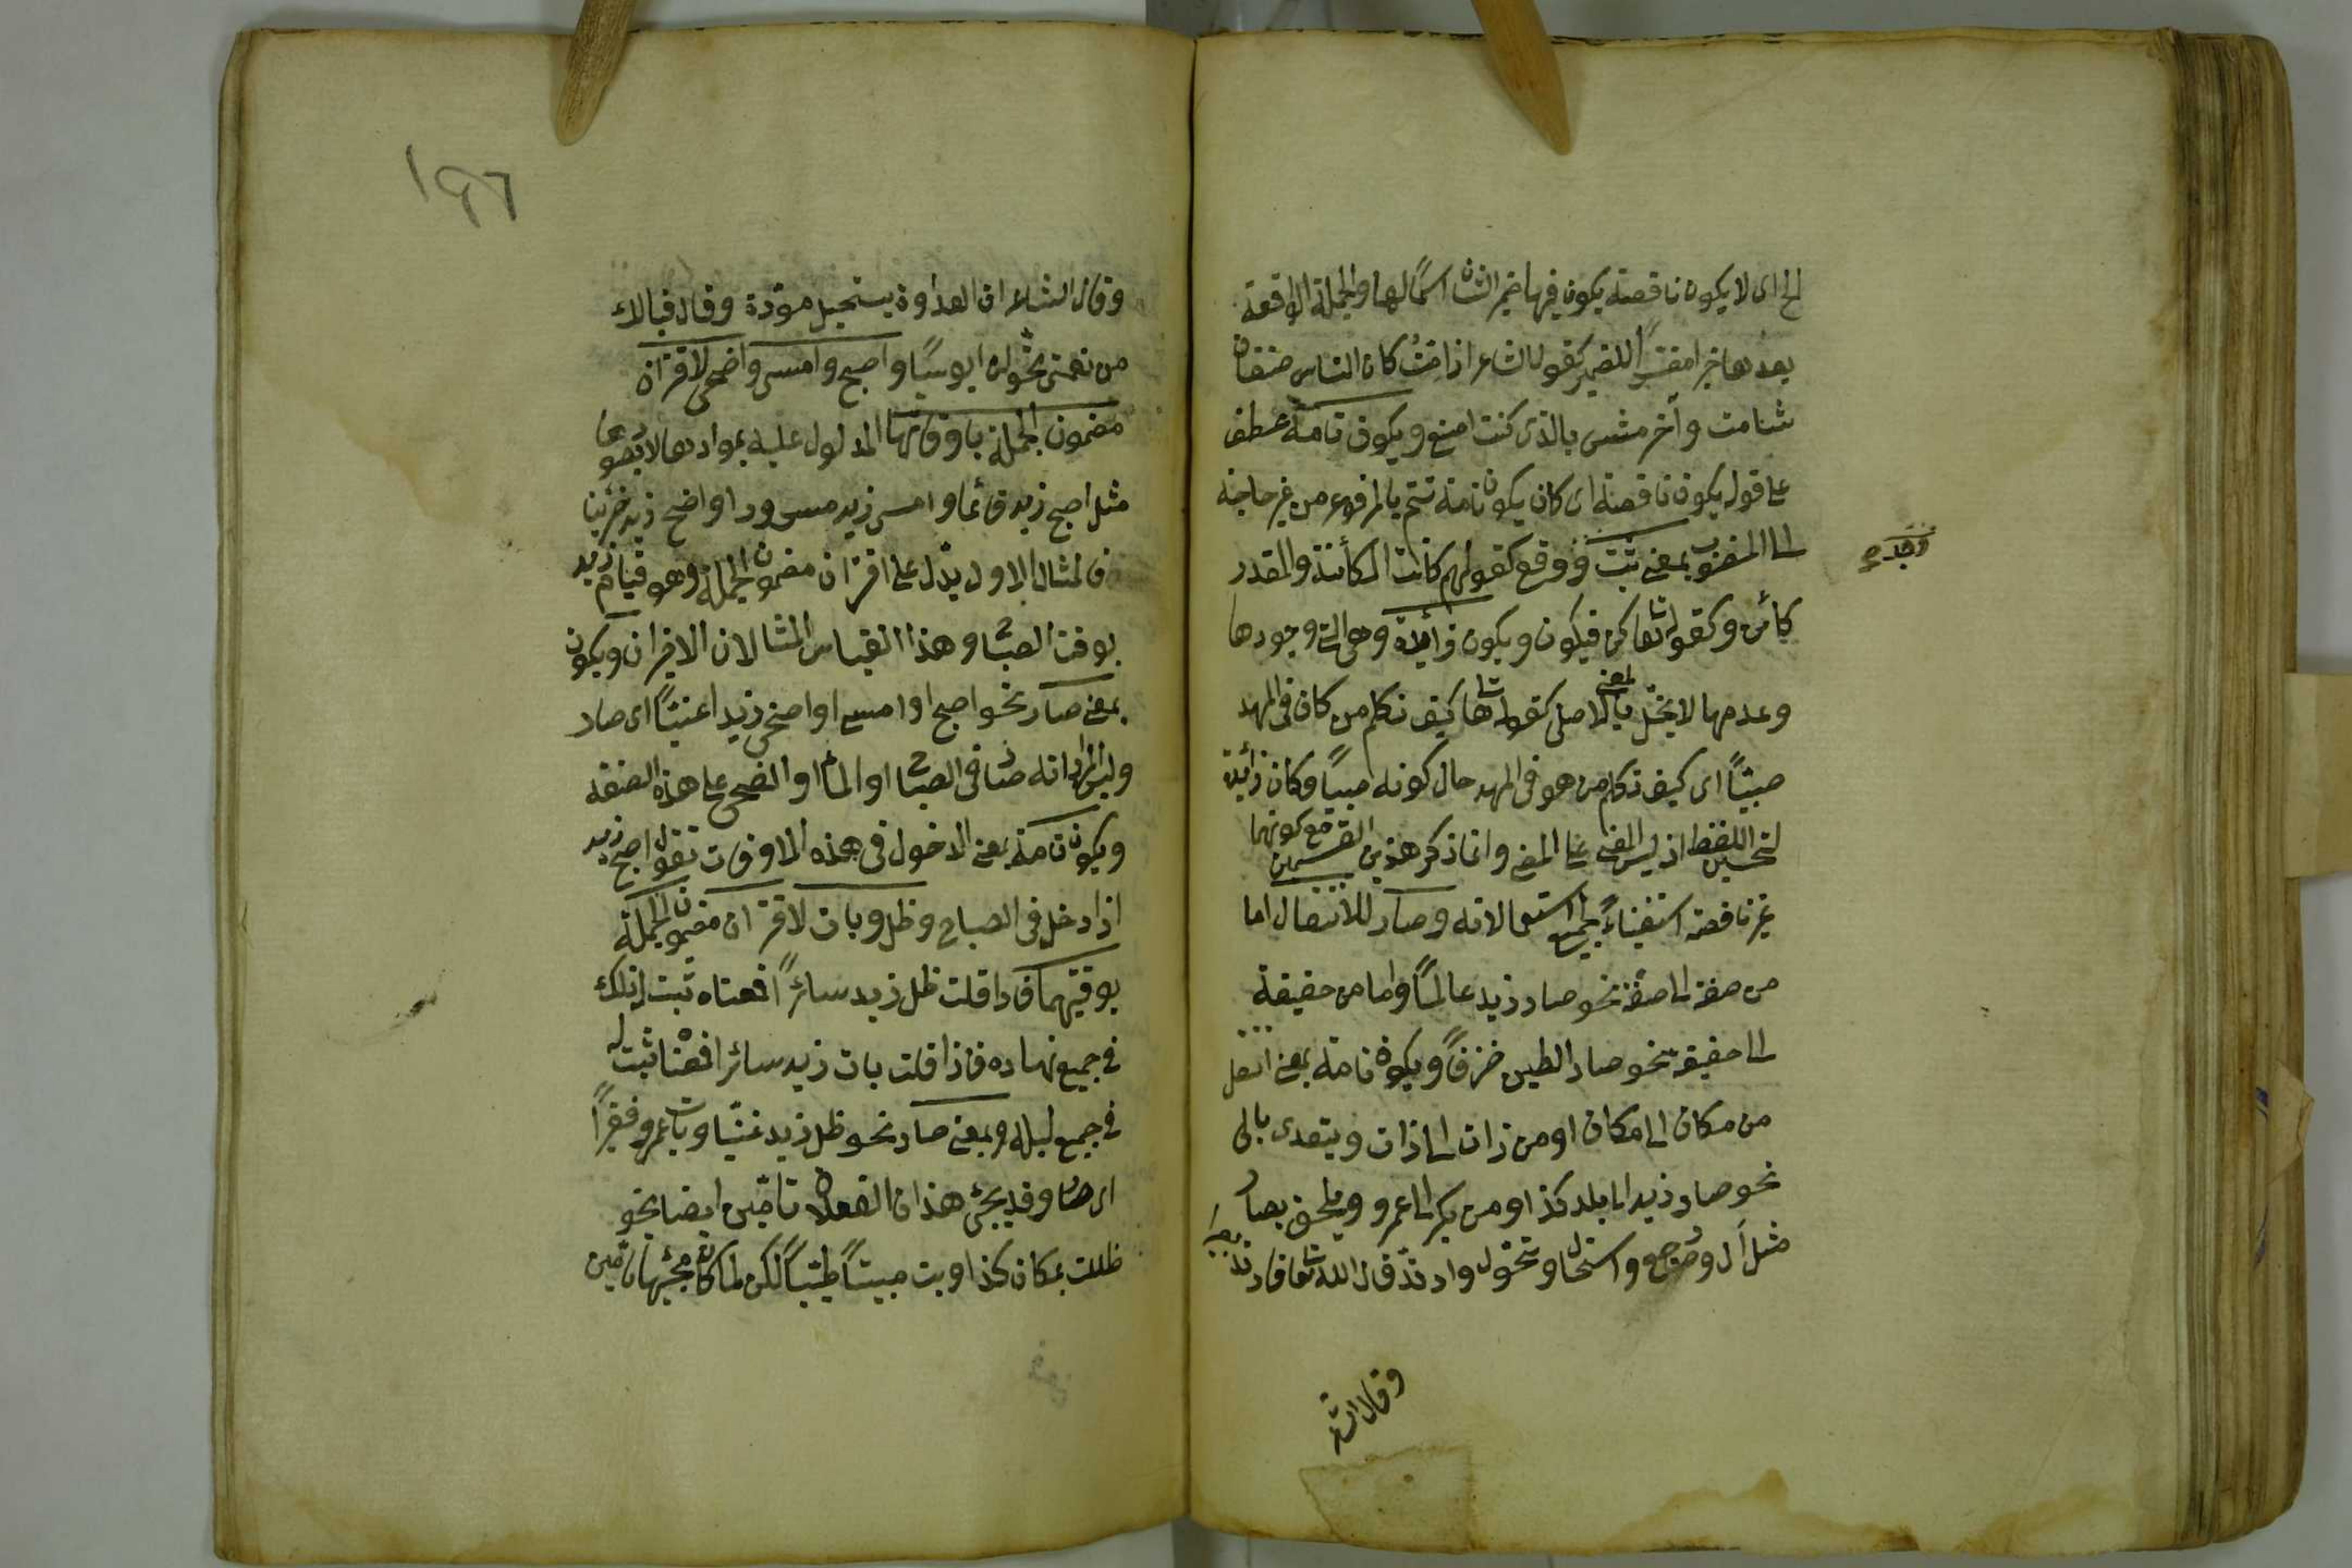 الخ اى لا يكون ناقصة يكون فيها ضمير الشان اسمًا لها والجملة الواقعة
بعدها خبرا مفسرًا للضمير كقول الشاعر اذا متُ كان الناس صنفان
شامت وآخر مثنى بالذى كنت اصنع ويكون تامة عطف
على قوله يكون ناقصة اى كان يكون تامة تتم بالمرفوع من غير حاجة
الى المنصوب بمعنى ثبت ووقع كقولهم كانت الكائنة والمقدر
كائن وكقوله تعا كن فيكون ويكون زائدة وهى التى وجودها
وعدمها لا يخلّ بالمعنى الاصلى كقوله تعا كيف نكلم من كان فى المهد
صبيًا اى كيف نكلم من هو فى المهد حال كونه صبيًا وكان زائدة
لتحسين اللفظ اذ ليس المعنى على المضى وانما ذكر هذين القسمين مع كونهما
غير ناقصة استيفاءً لجميع استعمالاته وصار للانتقال اما
من صفة الى صفة نحو صار زيد عالمًا واما من حقيقة
الى حقيقة نحو صار الطين خزفًا ويكون تامة بمعنى انتقل
من مكان الى مكان او من ذات الى ذات ويتعدى بالى
نحو صار زيد الى بلد كذا او من بكر الى عمرو ويلحق بصار
مثل آل ورجع واستحال وتحول وارتدّ قال الله تعا فارتد بصيرا
وقال الشا
١٩٦
وقال الشاعر ان العداوة يستحيل مودة وقال فيالك
من نعمى تحولن ابوسًا واصبح وامسى واضحى لاقتران
مضمون الجملة باوقاتها المدلول عليه بموادها لا بصورها
مثل اصبح زيد قائما وامسى زيد مسرورا واضحى زيد حزينا
فالمثال الاول يدل على اقتران مضمون الجملة وهو قيام زيد
بوقت الصبا وهذا القياس المثالان الاخيران ويكون
بمعنى صار نحو اصبح او امسى او اضحى زيد غنيًا اى صار
وليس المراد انه صار فى الصبا او المسا او الضحى على هذه الصفة
ويكون تامة بمعنى الدخول فى هذه الاوقات تقول اصبح زيد
اذا دخل فى الصباح وظل وبات لاقتران مضمون الجملة
بوقتيهما فاذا قلت ظل زيد سائرًا فمعناه ثبت له ذلك
فى جميع نهاره فاذا قلت بات زيد سائرا فمعنا ثبت له
فى جميع ليله وبمعنى صار نحو ظل زيد غنيّا وبات عمرو فقيرًا
اى صار وقد يجئ هذان الفعلان تامّين ايضا نحو
ظللت بمكان كذا وبت مبيتًا طيبًا لكن لما كان مجيئهما تامين